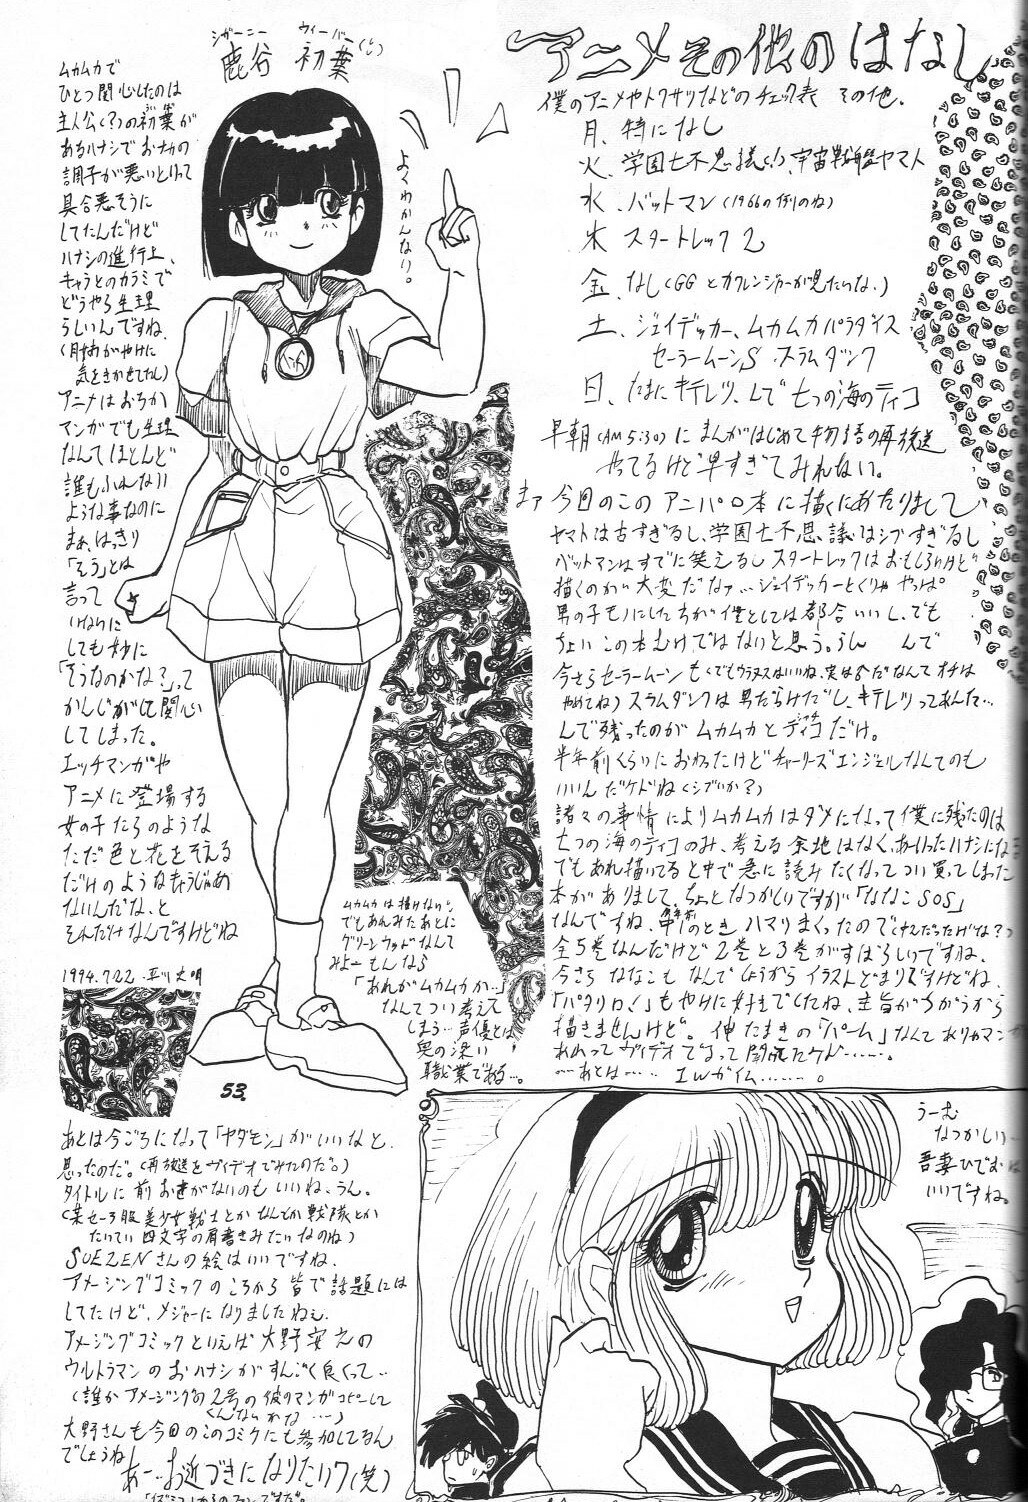 アニメその他のはなし
僕のアニメやトクサツなどのチェック表 その他.
月、特になし
火、学園七不思議(!)、宇宙戦艦ヤマト
水、バットマン(1966の例のね)
木 スタートレック2
金、なし(GGとカクレンジャーが見たいな.)
土、ジェイデッカー、ムカムカパラダイス
セーラームーンS、スラムダンク
日、たまにキテレツ、して七つの海のティコ
早朝(AM5:30)にまんがはじめて物語の再放送
やってるけど早すぎてみれない。
まァ今回のこのアニパロ本に描くにあたりまして
ヤマトは古すぎるし、学園七不思議はシブすぎるし
バットマンはすでに笑えるし スタートレックはおもしろいけど
描くのが大変だなァ…ジェイデッカーとくりゃやっぱ
男の子モノにした方が僕としては都合いいし、でも
ちょいこの本むけではないと思う。うん んで
今さらセーラームーンも(でもウラヌスはいいね、実は
やめてね)スラムダンクは男だらけだし、キテレツってあんた…
んで残ったのがムカムカとティコだけ。
半年前くらいにおわったけどチャーリーズエンジェルなんてのも
いいんだケドね(シブいか?)
諸々の事情によりムカムカはダメになって僕に残ったのは
七つの海のティコのみ、考える余地はなく、あーいったハナシになる
でもあれ描いてると中で急に読みたくなってつい買ってしまった
本がありまして、ちょとなつかしいですが「ななこSOS」
なんですね、のときハマりまくったので
全5巻なんだけど2巻と3巻がすばらしいですね.
今さらななこもなんでしょうからイラストどまりですけどね.
「パタリロ!」もやけに好きでしたね、主旨がちがうから
描きませんけど。伸たまきの「パーム」なんて
あとは…… エルガイム………。
シガーニー ウィーバー
鹿谷 初葉
よくわかんない。
ムカムカで
ひとつ関心したのは
主人公(?)の初葉が
あるハナシでおナカの
調子が悪いといって
具合悪そうに
してたんだけど
ハナシの進行上、
キャラとのカラミで
どうやら生理
らしいんですね.
気をきかせてたし)
アニメはおろか
マンガでも生理
なんてほとんど
誰もふれない
ような事なのに
まぁ、はっきり
「そう」とは
言って
いないに
しても妙に
「そうなのかな?」って
かんじがして関心
してしまった。
エッチマンガや
アニメに登場する
女の子たちのような
ただ色と花をそえる
だけのようなキャラじゃあ
ないんだな、と
それだけなんですけどね
1994.7.22.
ムカムカは描けない。
でもあれみたあとに
グリーンウッドなんて
みよーもんなら
「あれがムカムカか…」
なんてつい考えて
しまう…声優とは
奥の深い
職業である…。
53.
あとは今ごろになって「ヤダモン」がいいなと.
思ったのだ。(再放送をヴィデオでみたのだ。)
タイトルに前おきがないのもいいね、うん。
(某セーラ服美少女戦士とかなんたか戦隊とか
たいてい四文字の肩書きみたいなのね)
SUEZENさんの絵はいいですね.
アメージングコミックのころから皆で話題には
してたけど、メジャーになりましたねぇ.
アメージングコミックといえば大野安之の
ウルトラマンのおハナシがすんごく良くって…
(誰かアメージングの2号の彼のマンガコピーして
くんないかな…)
大野さんも今回のこのコミケにも参加してるん
でしょうね
あー…お近づきになりたいワ(笑)
うーむ
なつかしい…
吾妻ひでおは
いいですね。